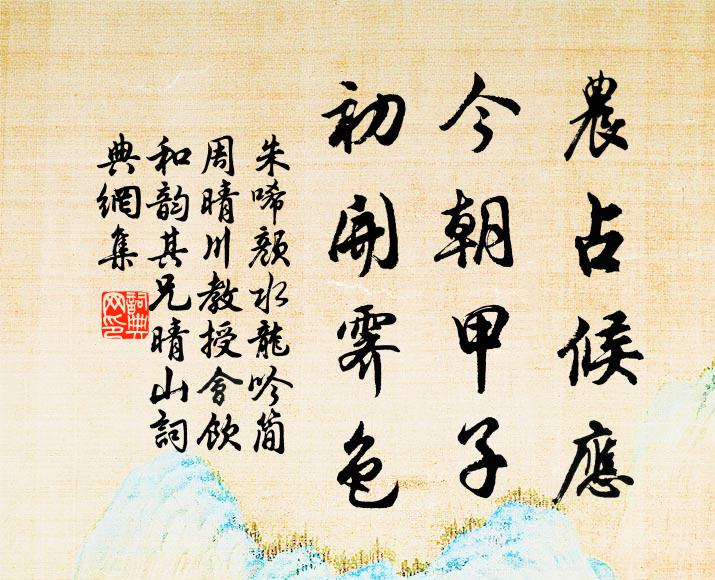 農占候應
今朝甲子
初開霽色
朱唏顏水龍吟簡
周晴川教授會飲
和韵其兄晴山詞
典網集
詞典
网印